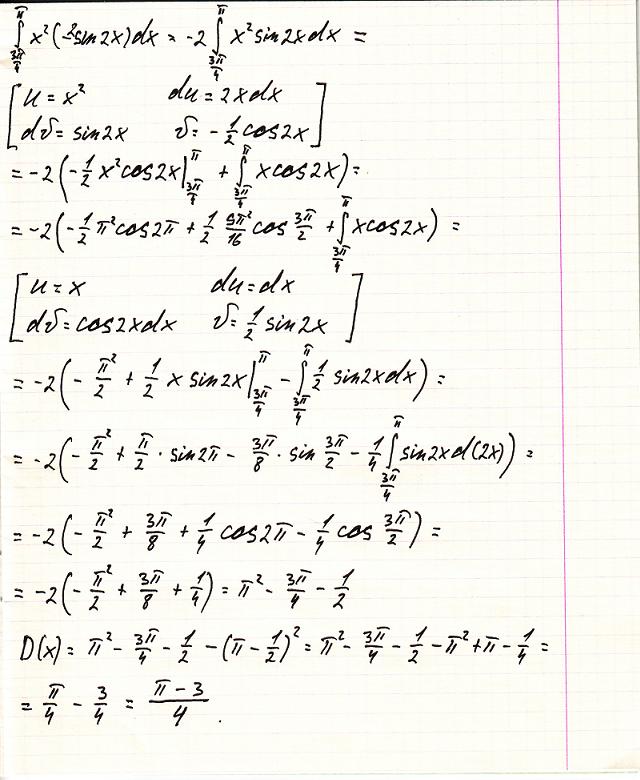 ∫_{3π/4}^{π} x²(-2sin2x)dx = -2 ∫_{3π/4}^{π} x² sin2x dx =
[ u = x²   du = 2x dx
dv = sin2x   v = -1/2 cos2x ]
= -2(-1/2 x² cos2x |_{3π/4}^{π} + ∫_{3π/4}^{π} x cos2x) =
= -2(-1/2 π² cos2π + 1/2 9π²/16 cos 3π/2 + ∫_{3π/4}^{π} x cos2x) =
[ u = x   du = dx
dv = cos2x dx   v = 1/2 sin2x ]
= -2(-π²/2 + 1/2 x sin2x |_{3π/4}^{π} - ∫_{3π/4}^{π} 1/2 sin2x dx) =
= -2(-π²/2 + π/2 · sin2π - 3π/8 · sin 3π/2 - 1/4 ∫_{3π/4}^{π} sin2x d(2x)) =
= -2(-π²/2 + 3π/8 + 1/4 cos2π - 1/4 cos 3π/2) =
= -2(-π²/2 + 3π/8 + 1/4) = π² - 3π/4 - 1/2
D(x) = π² - 3π/4 - 1/2 - (π - 1/2)² = π² - 3π/4 - 1/2 - π² + π - 1/4 =
= π/4 - 3/4 = (π - 3)/4 .